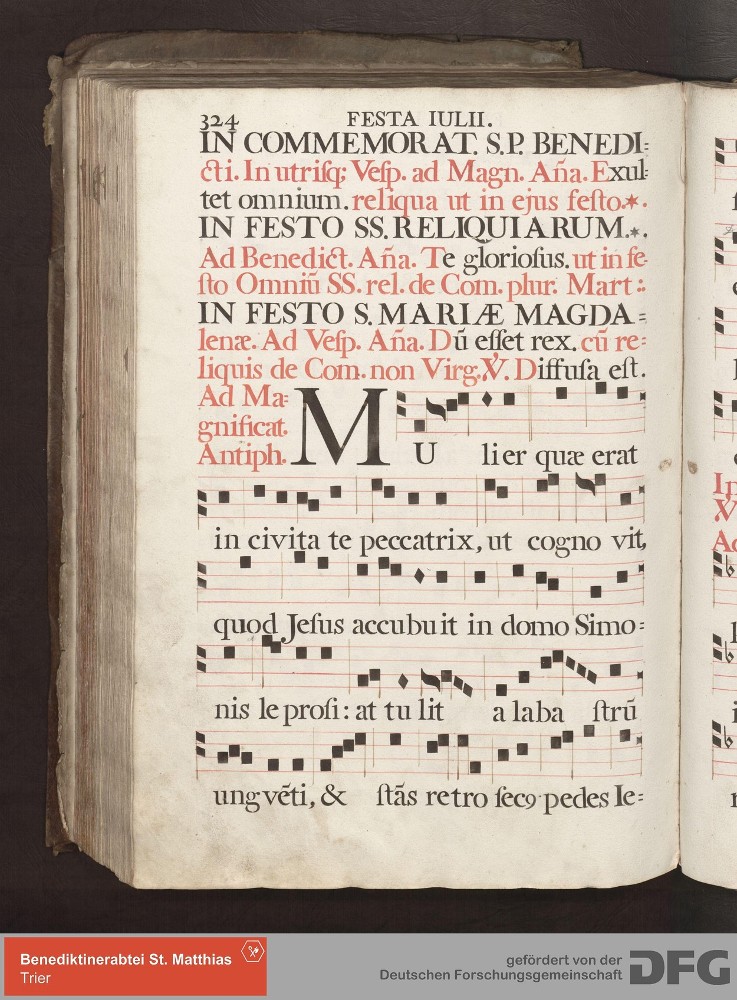 324 FESTA IULII.
IN COMMEMORAT. S.P. BENEDI=
cti. In utrisq; Vesp. ad Magn. Aña. Exul=
tet omnium. reliqua ut in ejus festo.*.
IN FESTO SS. RELIQUIARUM.*.
Ad Benedict. Aña. Te gloriosus. ut in fe=
sto Omniū SS. rel. de Com. plur. Mart:.
IN FESTO S. MARIÆ MAGDA=
lenæ. Ad Vesp. Aña. Dū esset rex. cū re=
liquis de Com. non Virg. ℣. Diffusa est.
Ad Ma=
gnificat.
Antiph.
MU lier quæ erat
in civita te peccatrix, ut cogno vit,
quod Jesus accubuit in domo Simo=
nis leprosi: at tulit a laba strū
ungvēti, & stās retro secꝯ pedes Ie=
Benediktinerabtei St. Matthias
Trier
gefördert von der
Deutschen Forschungsgemeinschaft
DFG